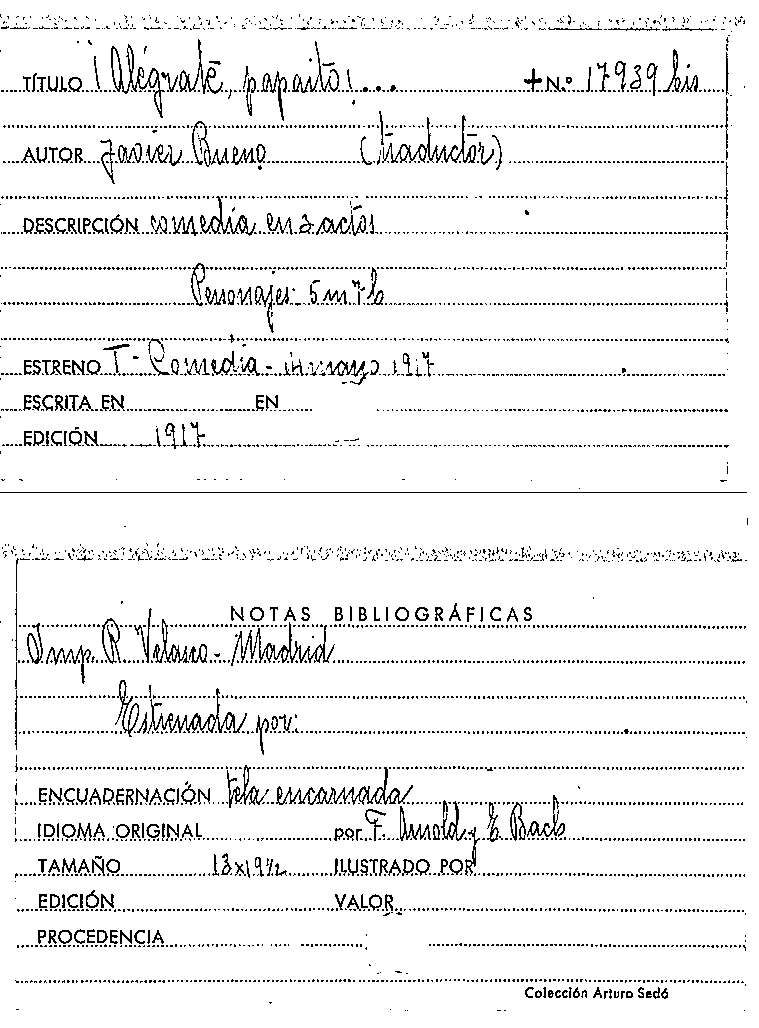 TÍTULO ¡Alégrate, papaito!... + N.º 17939 bis
AUTOR Javier Bueno (traductor)
DESCRIPCIÓN comedia en 3 actos
Personajes: 5 m 7 h
ESTRENO T - Comedia - 14 mayo 1917
ESCRITA EN EN
EDICIÓN 1917
NOTAS BIBLIOGRÁFICAS
Imp. R. Velasco - Madrid
Estrenada por:
ENCUADERNACIÓN tela encarnada
IDIOMA ORIGINAL por F. Arnold y E. Bach
TAMAÑO 13x19½ ILUSTRADO POR
EDICIÓN VALOR
PROCEDENCIA
Colección Arturo Sedó